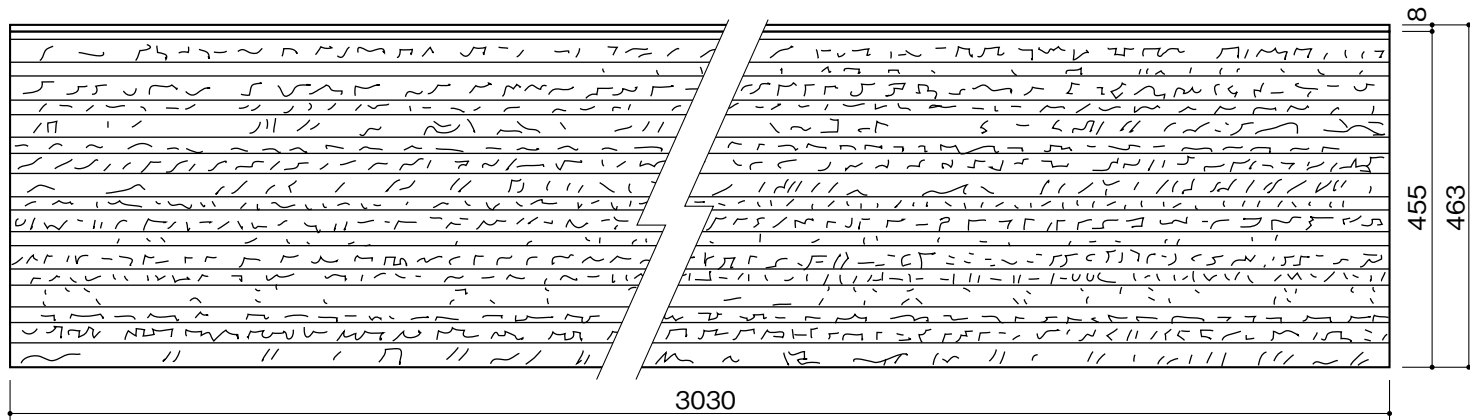 8
455
463
3030